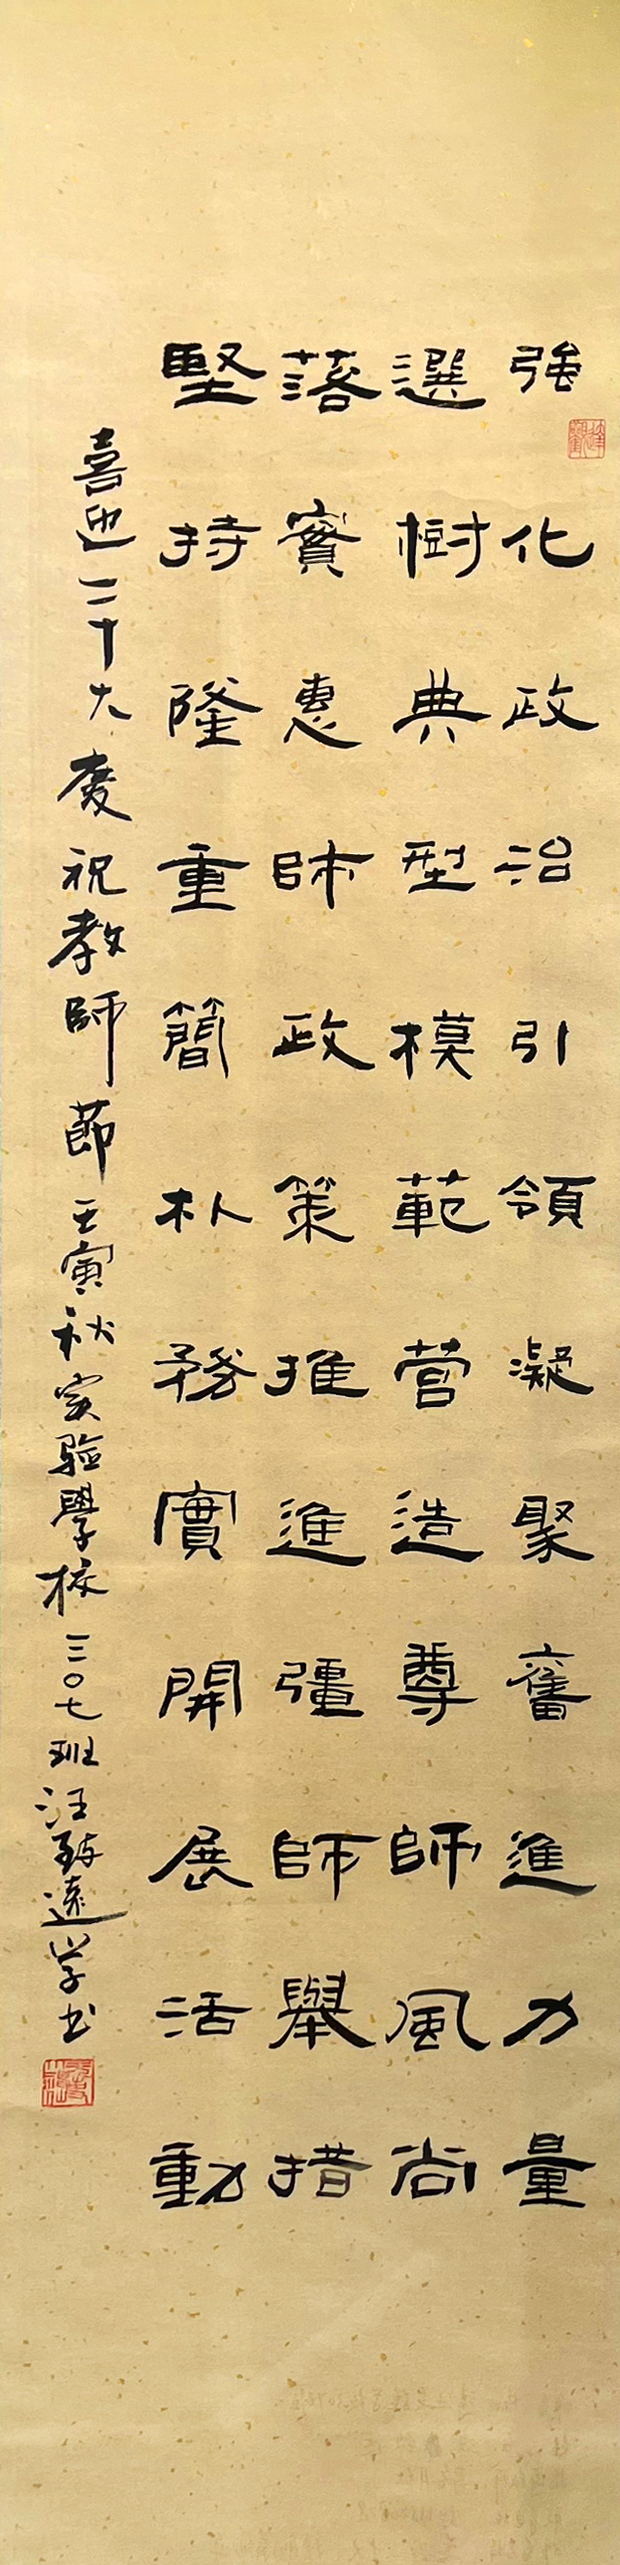 強化政治引領凝聚奮進力量
選樹典型模範營造尊師風尚
落實惠師政策推進彊師舉措
堅持隆重簡朴務實開展活動
喜迎二十大慶祝教師節壬寅秋实驗學校三〇七班汪致遠學书